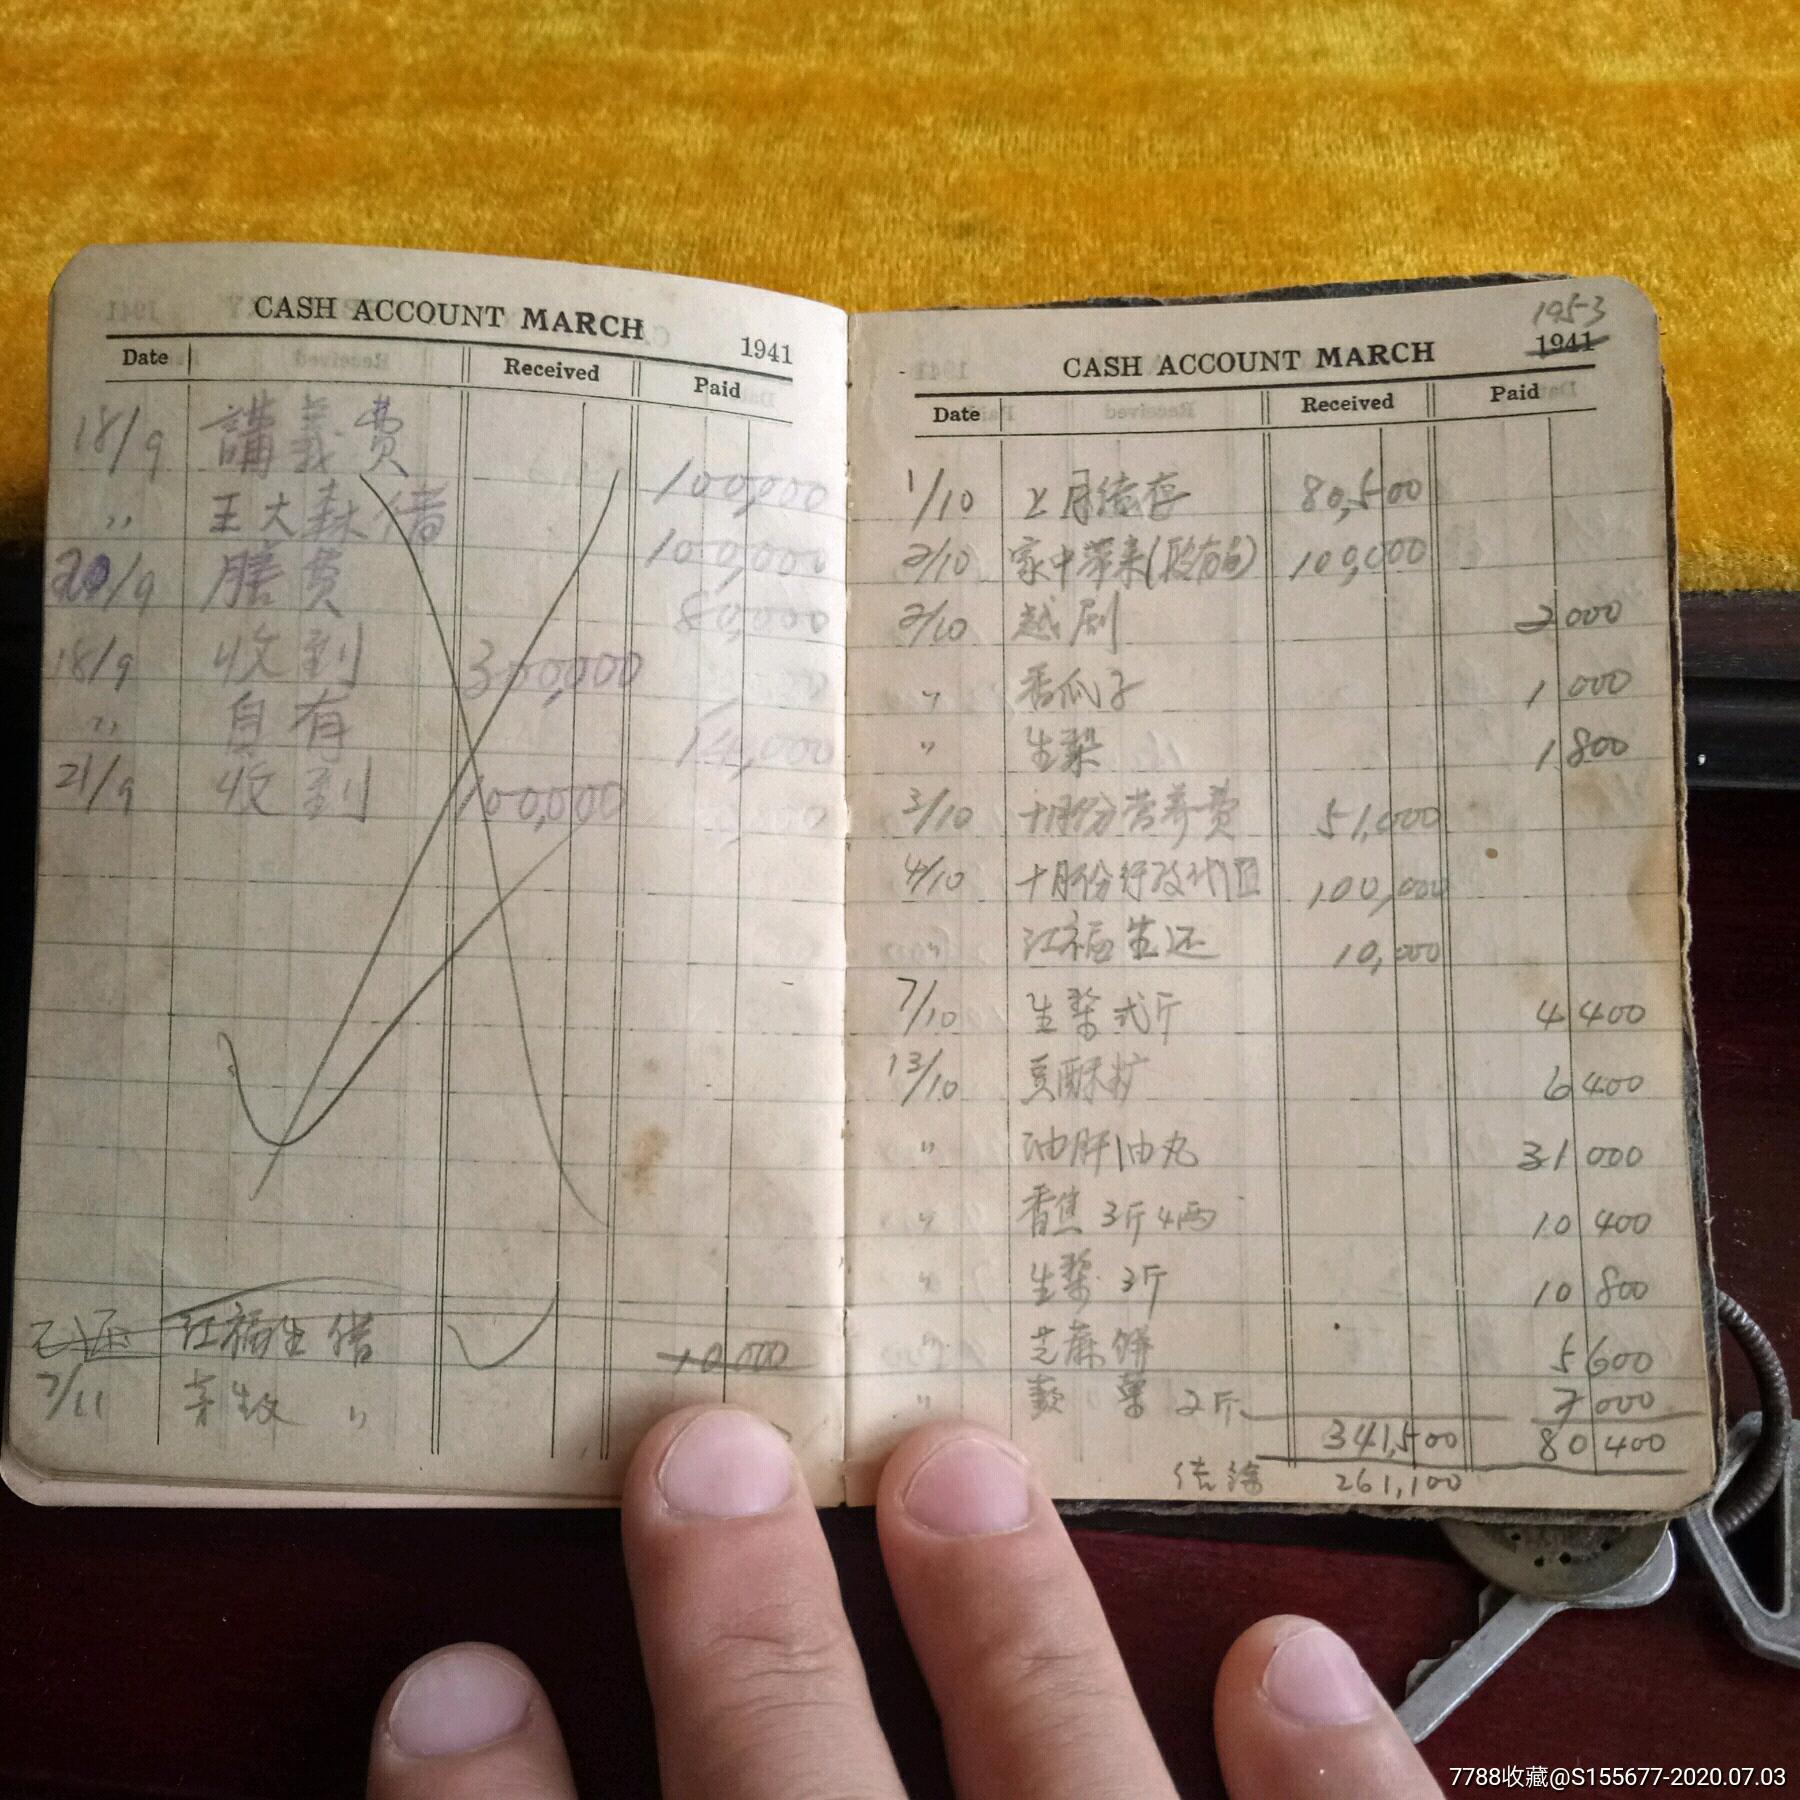 CASH ACCOUNT MARCH 1941
Date Received Paid
18/9 講義费 100,000
〃 王大森借 100,000
20/9 膳费 80,000
18/9 收到 300,000
〃 自有 14,000
21/9 收到 100,000
已还 江福生借 10,000
7/11 〃
1953
CASH ACCOUNT MARCH 1941
Date Received Paid
1/10 上月结存 80,500
2/10 家中带来 100,000
2/10 越剧 2000
〃 香瓜子 1000
〃 生梨 1800
3/10 十月份营养费 51,000
4/10 十月份行政 100,000
江福生还 10,000
7/10 生梨弍斤 4400
13/10 豆酥 6400
〃 油肝油丸 31000
〃 香焦 3斤4两 10400
〃 生梨 3斤 10800
〃 芝麻饼 5600
〃 2斤 7000
341,500 80400
结馀 261,100
7788收藏@S155677-2020.07.03